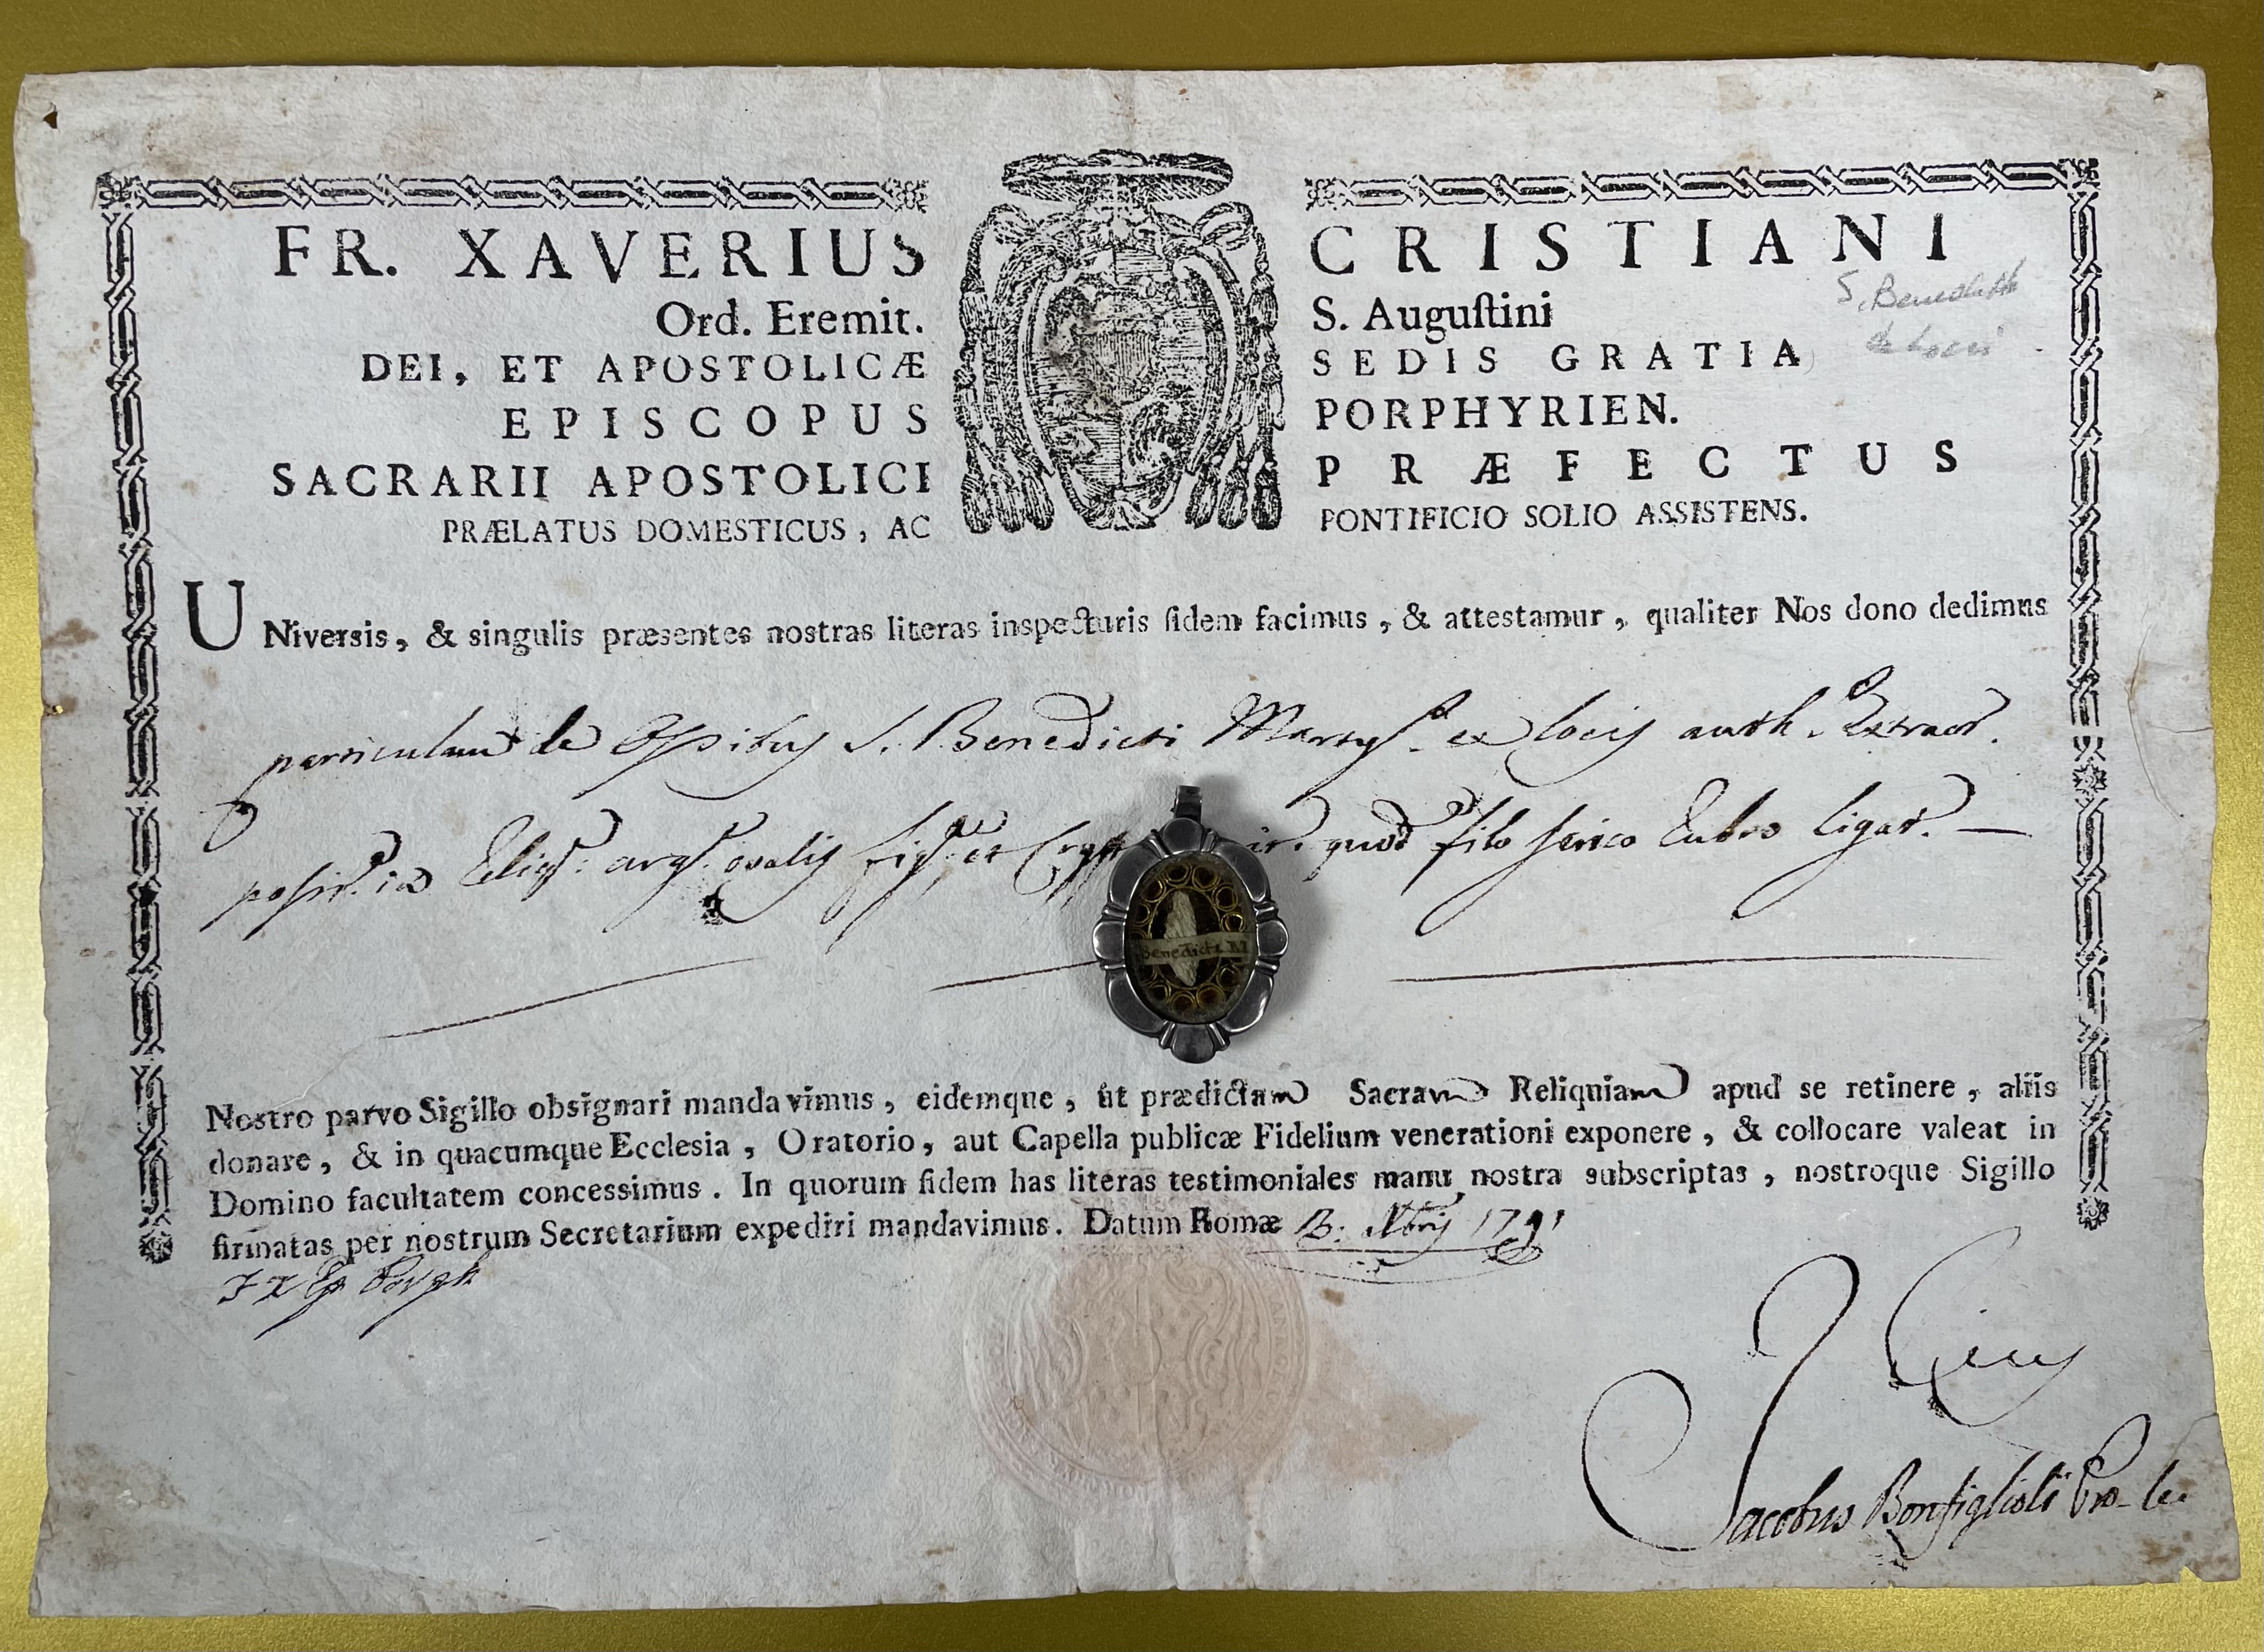 FR. XAVERIUS CRISTIANI
Ord. Eremit. S. Auguſtini
DEI, ET APOSTOLICÆ SEDIS GRATIA
EPISCOPUS PORPHYRIEN.
SACRARII APOSTOLICI PRÆFECTUS
PRÆLATUS DOMESTICUS, AC PONTIFICIO SOLIO ASSISTENS.
S. Benedicti
UNiversis, & singulis præsentes nostras literas inspecturis fidem facimus, & attestamur, qualiter Nos dono dedimus
particulam de Ossibus S. Benedicti Mart. ex locis auth. Extract.
posit. in Reliq. arg. ovalis fig. et quod filo serico rubro ligat.
Benedicti M
Nostro parvo Sigillo obsignari mandavimus, eidemque, ut prædictam Sacram Reliquiam apud se retinere, aliis
donare, & in quacumque Ecclesia, Oratorio, aut Capella publicæ Fidelium venerationi exponere, & collocare valeat in
Domino facultatem concessimus. In quorum fidem has literas testimoniales manu nostra subscriptas, nostroque Sigillo
firmatas per nostrum Secretarium expediri mandavimus. Datum Romæ 1791
Jacobus Bonfiglioli Pro-